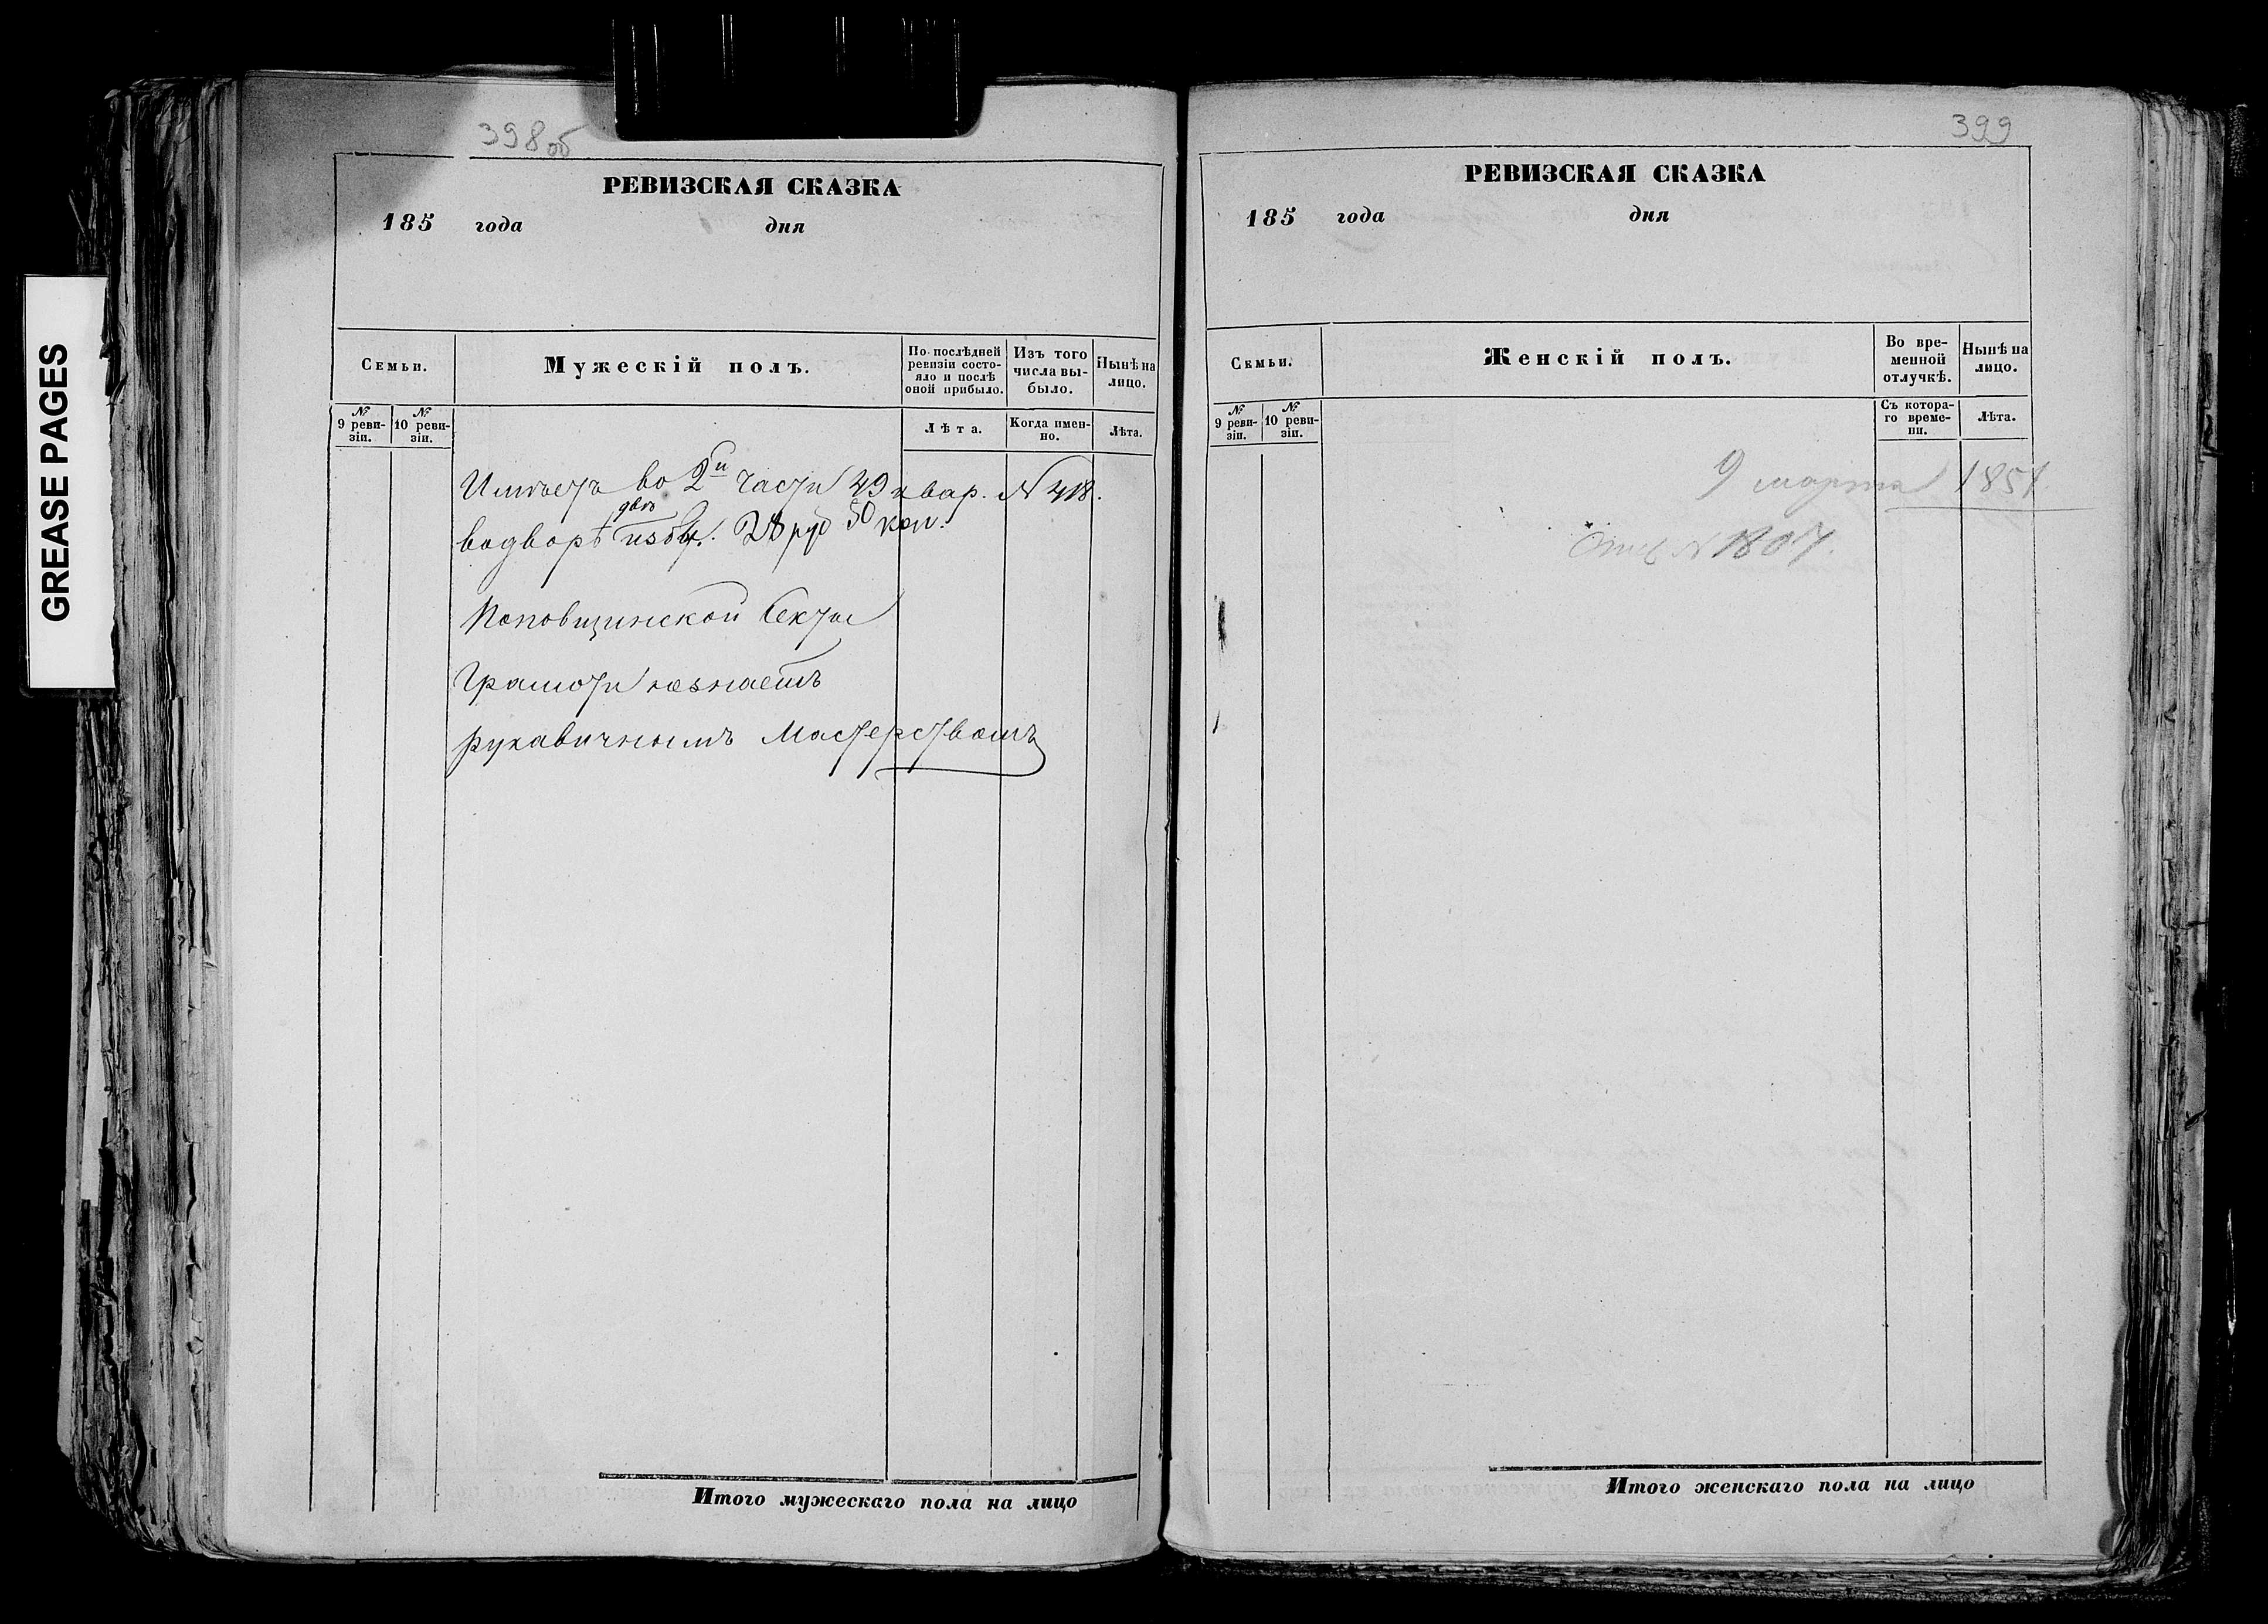 GREASE PAGES
398 об
РЕВИЗСКАЯ СКАЗКА
185 года дня
Семьи.
Мужескій полъ.
По послѣдней ревизіи состо-
яло и послѣ оной прибыло.
Изъ того числа вы-
было.
Нынѣ на лицо.
№ 9 реви-
зіи.
№ 10 реви-
зіи.
Лѣта.
Когда имен-
но.
Лѣта.
Имѣетъ во 2й части 49 квар. N 418.
двѣ
водворѣ избы. 28 руб 50 коп.
Поповщинской Секты
Грамоти незнаетъ
рукавичнымъ Мастерствомъ
Итого мужескаго пола на лицо
399
РЕВИЗСКАЯ СКАЗКА
185 года дня
Семьи.
Женскій полъ.
Во вре-
менной
отлучкѣ.
Нынѣ на
лицо.
№ 9 реви-
зіи.
№ 10 реви-
зіи.
Съ котора-
го време-
ни.
Лѣта.
9 марта 1851.
N 1807.
Итого женскаго пола на лицо